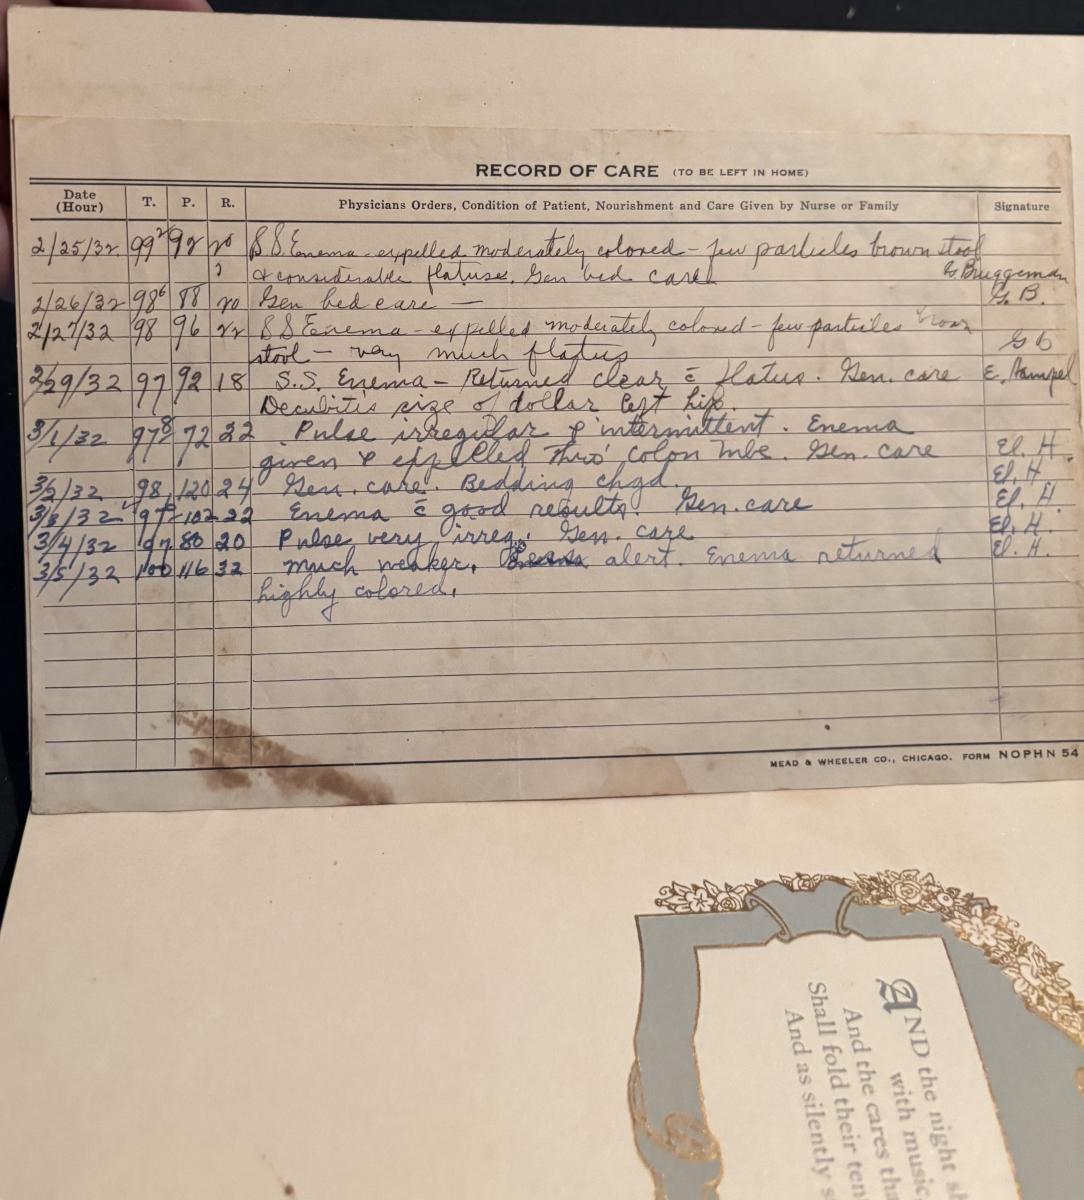 RECORD OF CARE (TO BE LEFT IN HOME)
Date (Hour) T. P. R. Physicians Orders, Condition of Patient, Nourishment and Care Given by Nurse or Family Signature
2/25/32 99² 92 20 S.S. Enema - expelled moderately colored - few particles brown stool
& considerable flatus. Gen bed care G Bruggeman
2/26/32 98⁶ 88 20 Gen bed care — G.B.
2/27/32 98 96 22 S S Enema - expelled moderately colored - few particles brown
stool - very much flatus G B
2/29/32 97 92 18 S.S. Enema - Returned clear c̄ flatus. Gen. care E. Hampel
Decubitis size of dollar left hip.
3/1/32 97⁸ 72 22 Pulse irregular & intermittent. Enema
given & expelled thro' colon tube. Gen. care El. H.
3/2/32 98 120 24 Gen. care. Bedding chgd. El. H
3/3/32 97 102 22 Enema c̄ good results. Gen. care El. H
3/4/32 97 80 20 Pulse very irreg. Gen. care El. H.
3/5/32 100 116 32 much weaker, alert. Enema returned El. H.
highly colored.
MEAD & WHEELER CO., CHICAGO. FORM NOPHN 54
AND the night
with music,
And the cares
Shall fold their
And as silently